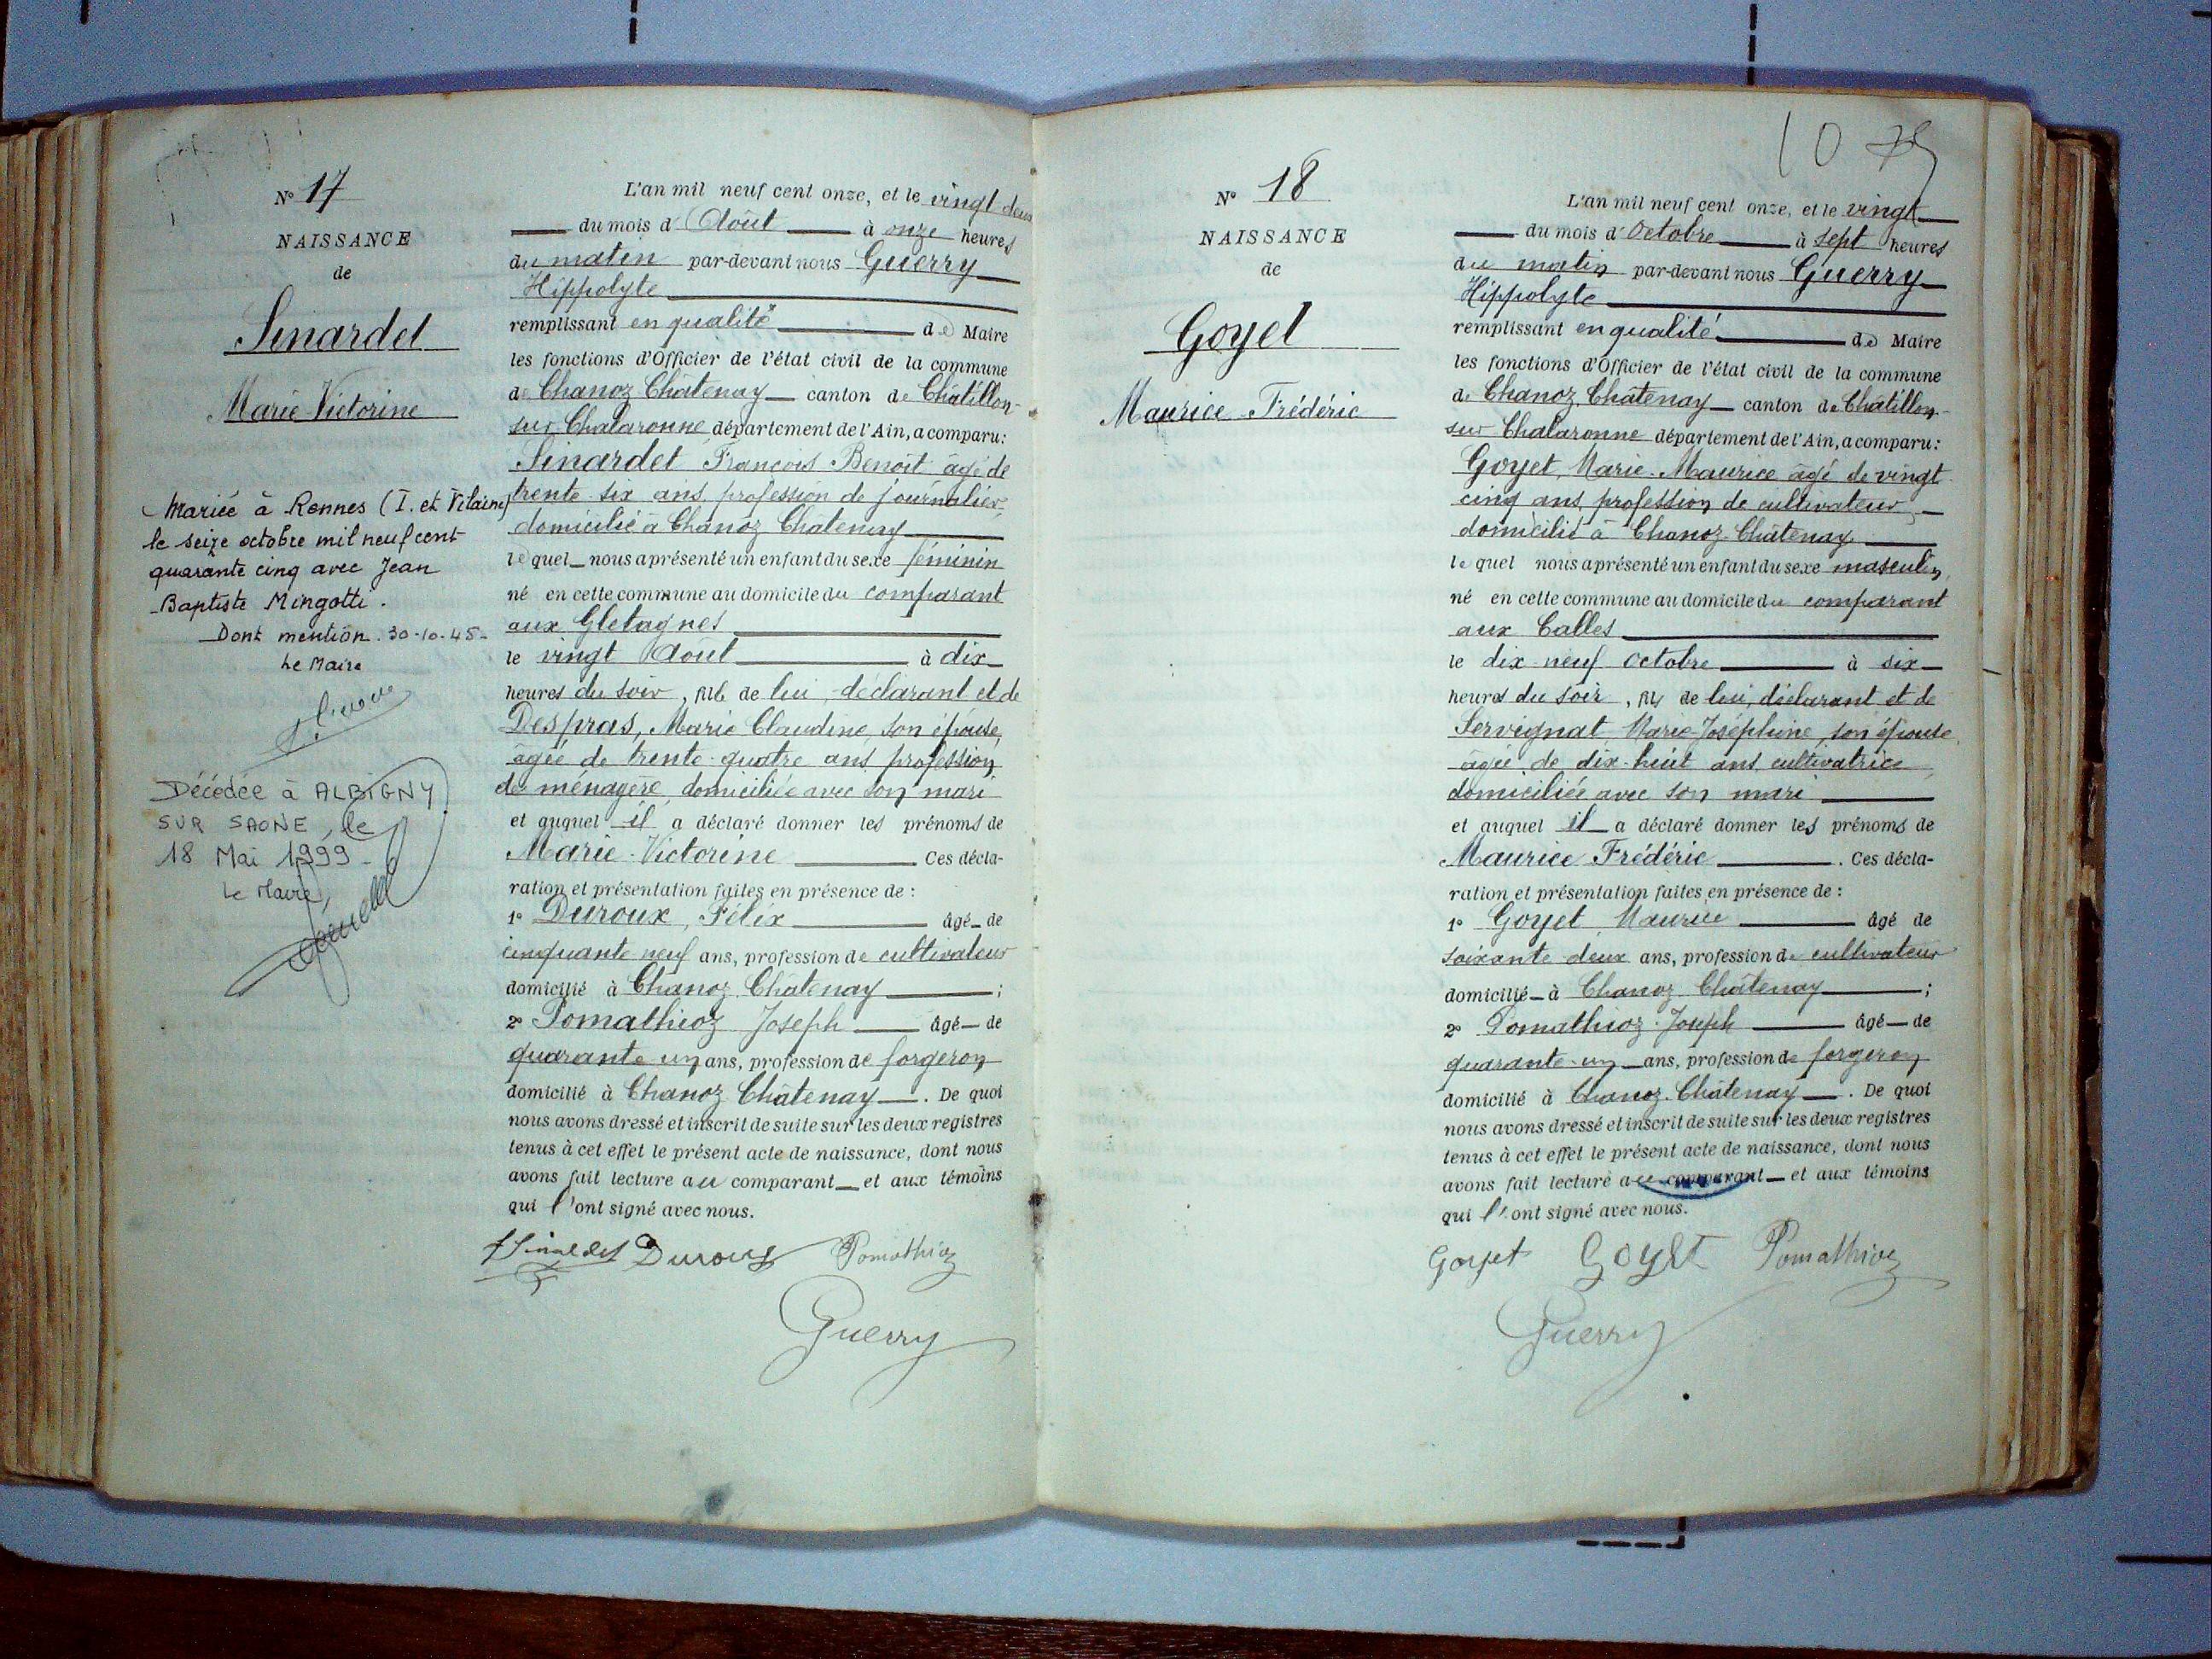 N° 17
NAISSANCE
de
Sinardet
Marie Victorine
Mariée à Rennes (I. et Vilaine)
le seize octobre mil neuf cent
quarante cinq avec Jean
Baptiste Mingotti.
Dont mention. 30-10-45-
Le Maire
Décédée à ALBIGNY
SUR SAONE, le
18 Mai 1999-
Le Maire,
L'an mil neuf cent onze, et le vingt deux
du mois d'Août à onze heures
du matin par-devant nous Guerry
Hippolyte
remplissant en qualité de Maire
les fonctions d'Officier de l'état civil de la commune
de Chanoz Châtenay canton de Châtillon-
sur Chalaronne département de l'Ain, a comparu:
Sinardet François Benoît âgé de
trente-six ans, profession de journalier,
domicilié à Chanoz Châtenay
lequel nous a présenté un enfant du sexe féminin
né en cette commune au domicile du comparant
aux Gletagnes
le vingt Août à dix
heures du soir, fille de lui, déclarant et de
Despras, Marie Claudine, son épouse,
âgée de trente-quatre ans, profession
de ménagère, domiciliée avec son mari
et auquel il a déclaré donner les prénoms de
Marie-Victorine Ces décla-
ration et présentation faites en présence de :
1° Duroux, Félix âgé de
cinquante neuf ans, profession de cultivateur
domicilié à Chanoz Châtenay ;
2° Pomathioz Joseph âgé de
quarante un ans, profession de forgeron
domicilié à Chanoz Châtenay. De quoi
nous avons dressé et inscrit de suite sur les deux registres
tenus à cet effet le présent acte de naissance, dont nous
avons fait lecture au comparant et aux témoins
qui l'ont signé avec nous.
Duroux Pomathioz
Guerry
10
N° 18
NAISSANCE
de
Goyet
Maurice-Frédéric
L'an mil neuf cent onze, et le vingt
du mois d'Octobre à sept heures
du matin par-devant nous Guerry
Hippolyte
remplissant en qualité de Maire
les fonctions d'Officier de l'état civil de la commune
de Chanoz-Châtenay canton de Châtillon-
sur Chalaronne département de l'Ain, a comparu:
Goyet, Marie-Maurice âgé de vingt-
cinq ans, profession de cultivateur,
domicilié à Chanoz-Châtenay
lequel nous a présenté un enfant du sexe masculin,
né en cette commune au domicile du comparant
aux Calles
le dix-neuf octobre à six
heures du soir, fils de lui, déclarant et de
Servignat Marie-Joséphine, son épouse,
âgée de dix-huit ans, cultivatrice,
domiciliée avec son mari
et auquel il a déclaré donner les prénoms de
Maurice Frédéric. Ces décla-
ration et présentation faites en présence de :
1° Goyet, Maurice âgé de
soixante deux ans, profession de cultivateur
domicilié à Chanoz Châtenay ;
2° Pomathioz-Joseph âgé de
quarante-un ans, profession de forgeron
domicilié à Chanoz-Châtenay. De quoi
nous avons dressé et inscrit de suite sur les deux registres
tenus à cet effet le présent acte de naissance, dont nous
avons fait lecture au comparant et aux témoins
qui l'ont signé avec nous.
Goyet Goyet Pomathioz
Guerry